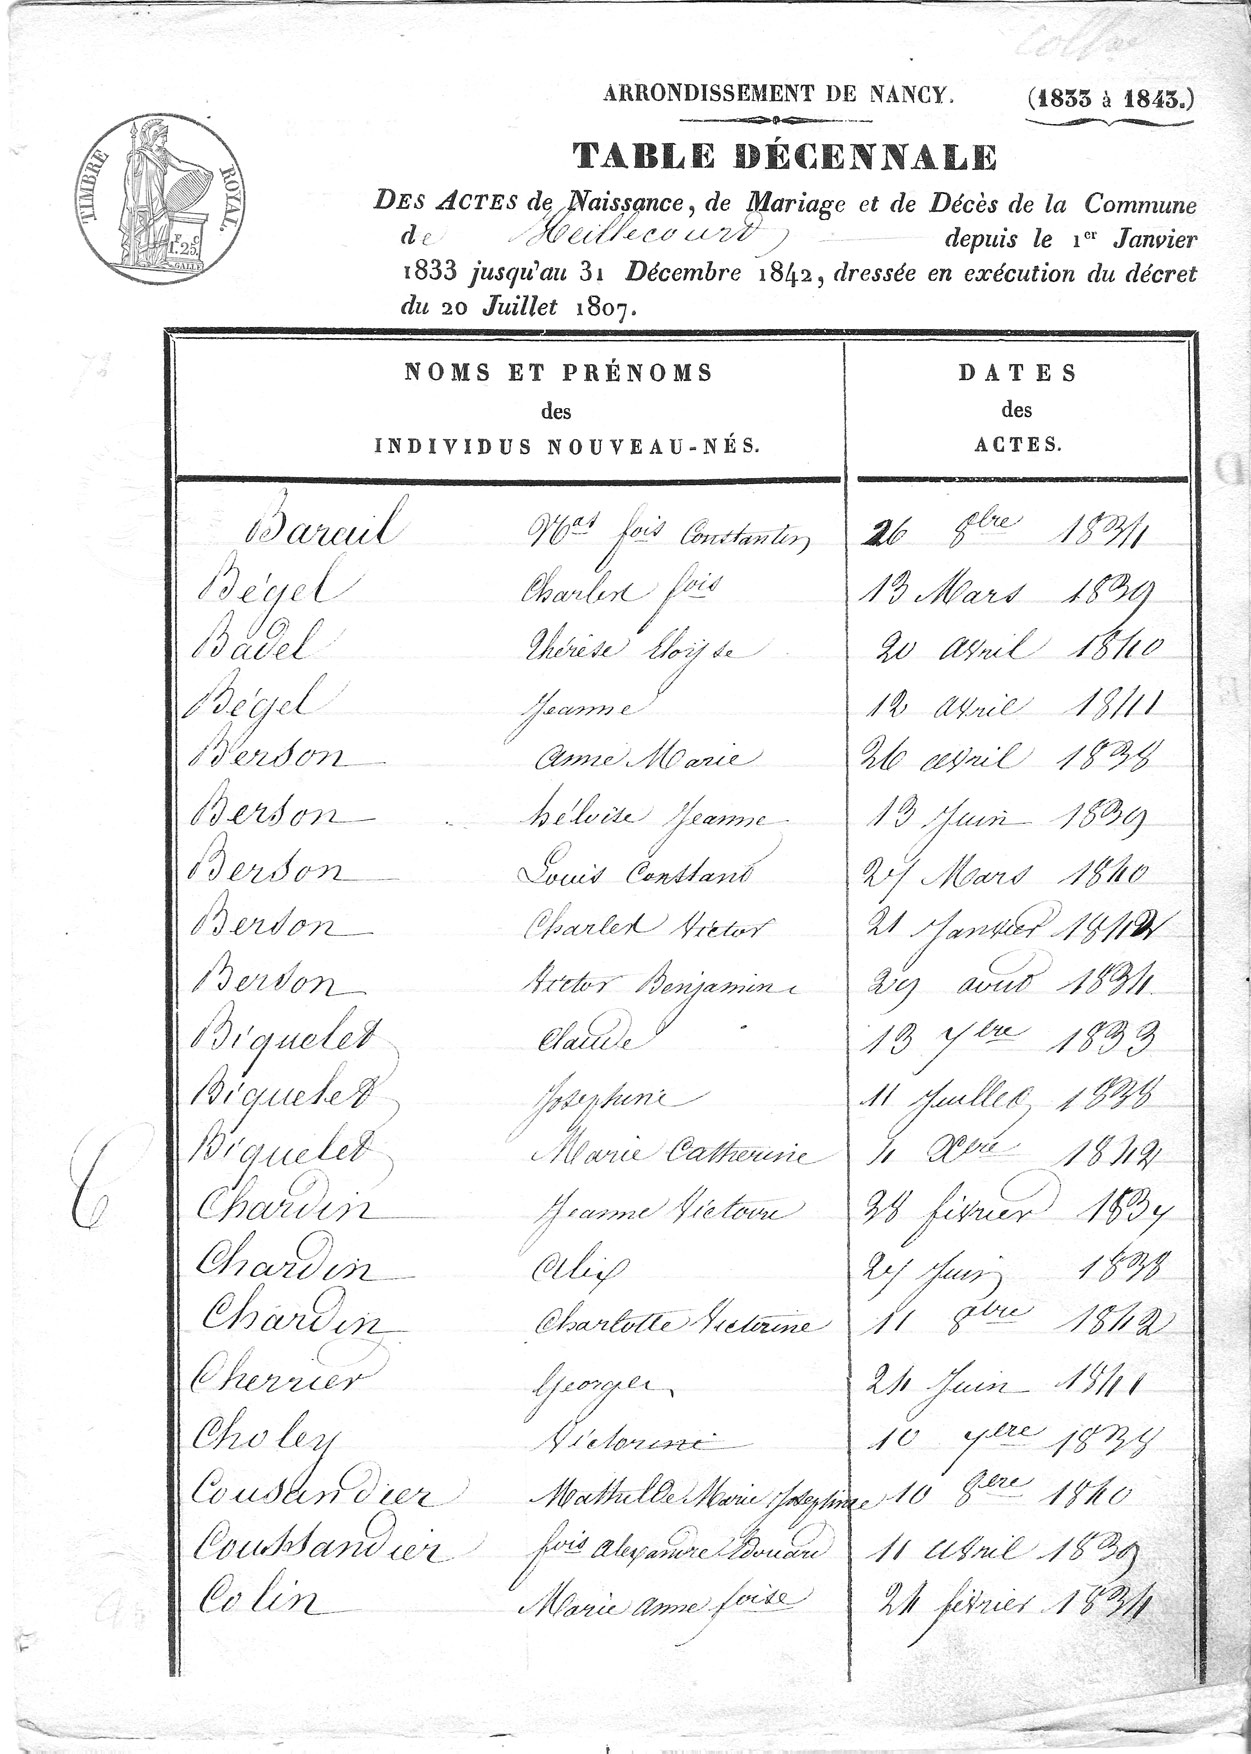 ARRONDISSEMENT DE NANCY. (1833 à 1843.)
TIMBRE ROYAL.
F. C
1. 25.
GALLE
TABLE DÉCENNALE
DES ACTES de Naissance, de Mariage et de Décès de la Commune
de Heillecourt depuis le 1er Janvier
1833 jusqu'au 31 Décembre 1842, dressée en exécution du décret
du 20 Juillet 1807.
NOMS ET PRÉNOMS DATES
des des
INDIVIDUS NOUVEAU-NÉS. ACTES.
Barail Nas fois Constantin 26 8bre 1834
Bégel Charles fois 13 Mars 1839
Badel Thérèse Eloÿse 20 avril 1840
Bégel Jeanne 12 avril 1841
Berson anne Marie 26 avril 1838
Berson héloïse Jeanne 13 Juin 1839
Berson Louis Constant 27 Mars 1840
Berson Charles Victor 21 Janvier 1842
Berson Victor Benjamin 29 aout 1834
Biquelet Claude 13 7bre 1833
Biquelet Josephine 11 Juillet 1838
Biquelet Marie Catherine 4 Xbre 1842
C
Chardin Jeanne Victoire 28 février 1837
Chardin Alix 27 Juin 1838
Chardin Charlotte Victorine 11 8bre 1842
Cherrier Georges 24 Juin 1841
Choley Victorine 10 7bre 1838
Cousandier Mathilde Marie Josephine 10 8bre 1840
Coussandier fois alexandre Edouard 11 avril 1839
Colin Marie anne foise 24 février 1834